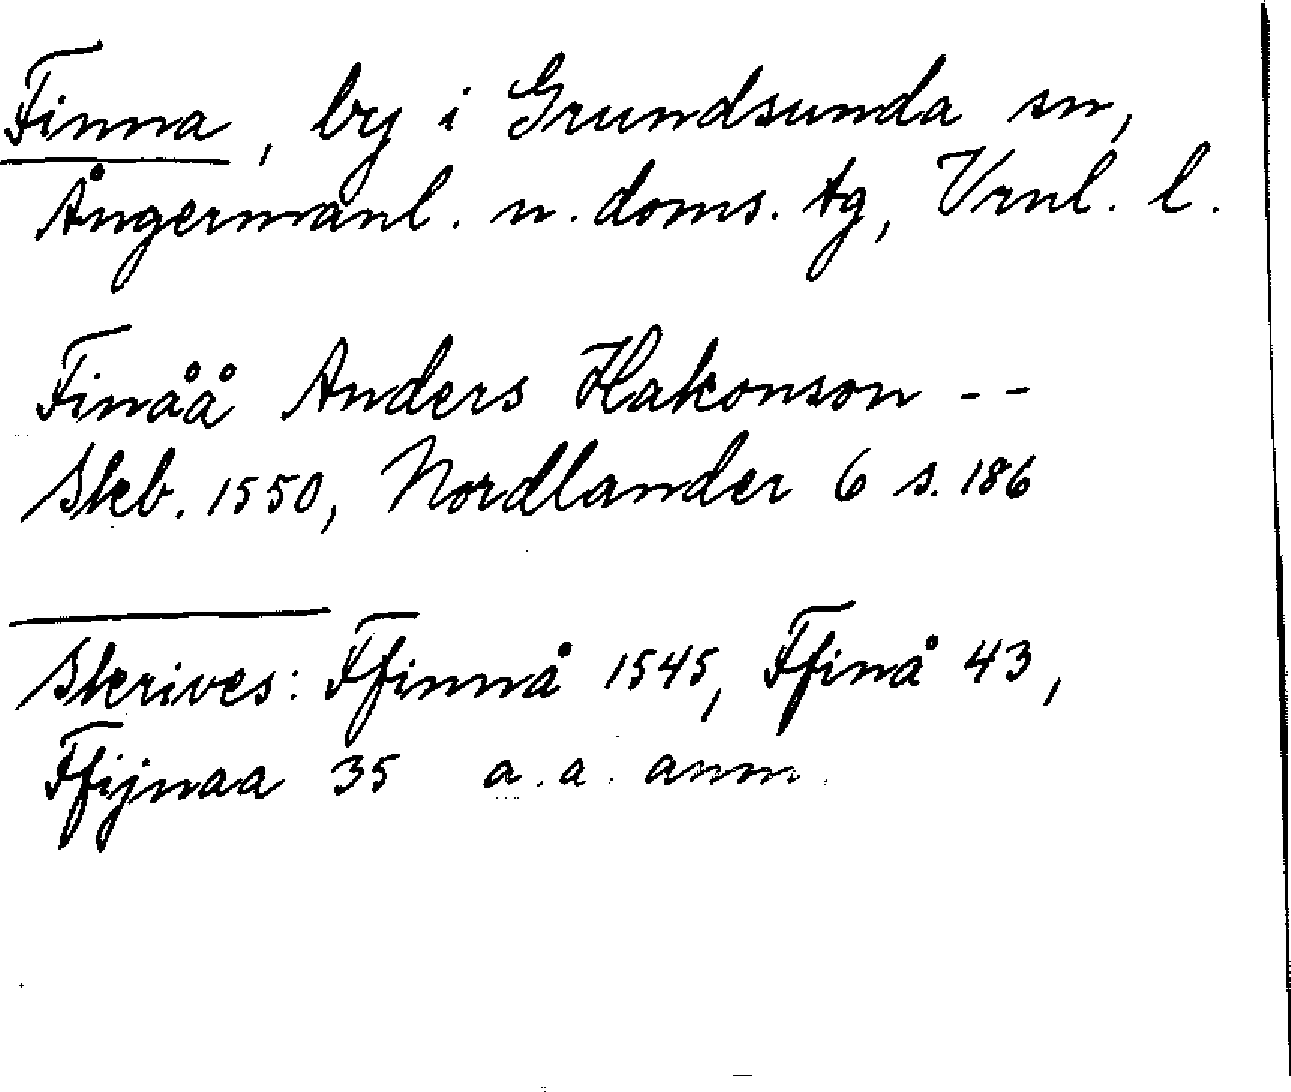 Finna, by i Grundsunda sn,
Ångermanl. n. doms. tg, Vrnl. l.
Finåå Anders Hakonson - -
Skb. 1550, Nordlander 6 s. 186
Skrives: Ffinnå 1545, Ffinå 43,
Ffijnaa 35 a. a. anm.